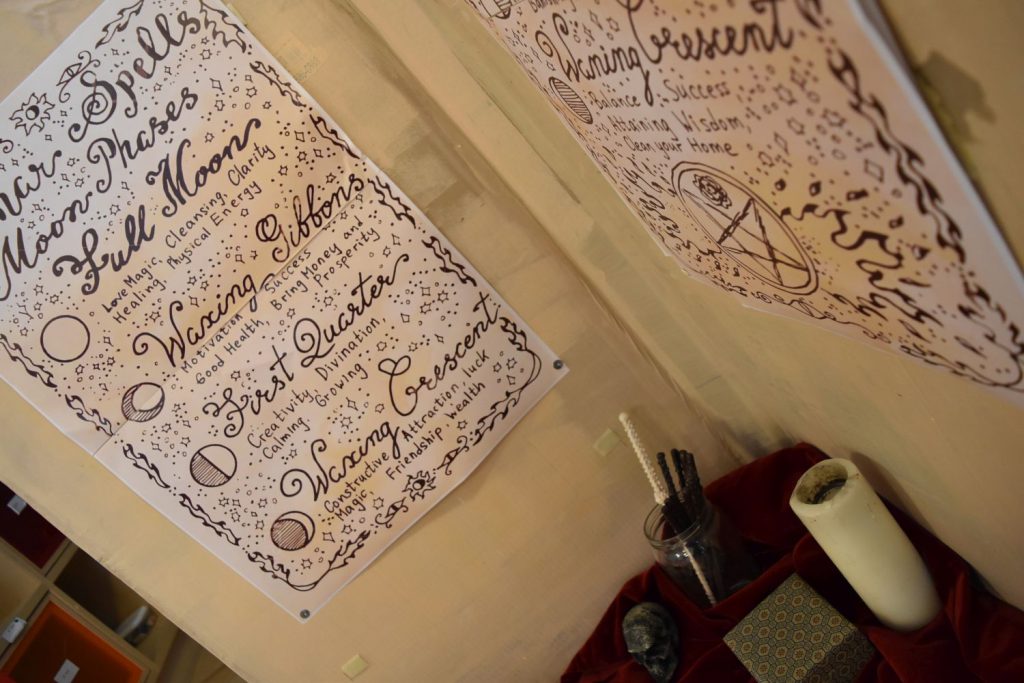 nar Spells
Moon Phases
Full Moon
Love Magic, Cleansing, Clarity
Healing, Physical Energy
Waxing Gibbons
Motivation, Success
Good Health, Bring Money and
Prosperity
First Quarter
Creativity, Divination,
Calming Growing
Waxing Crescent
Constructive Attraction, luck
Magic, Friendship wealth
Waning Crescent
Balance, Success
Attaining Wisdom,
Clean your Home